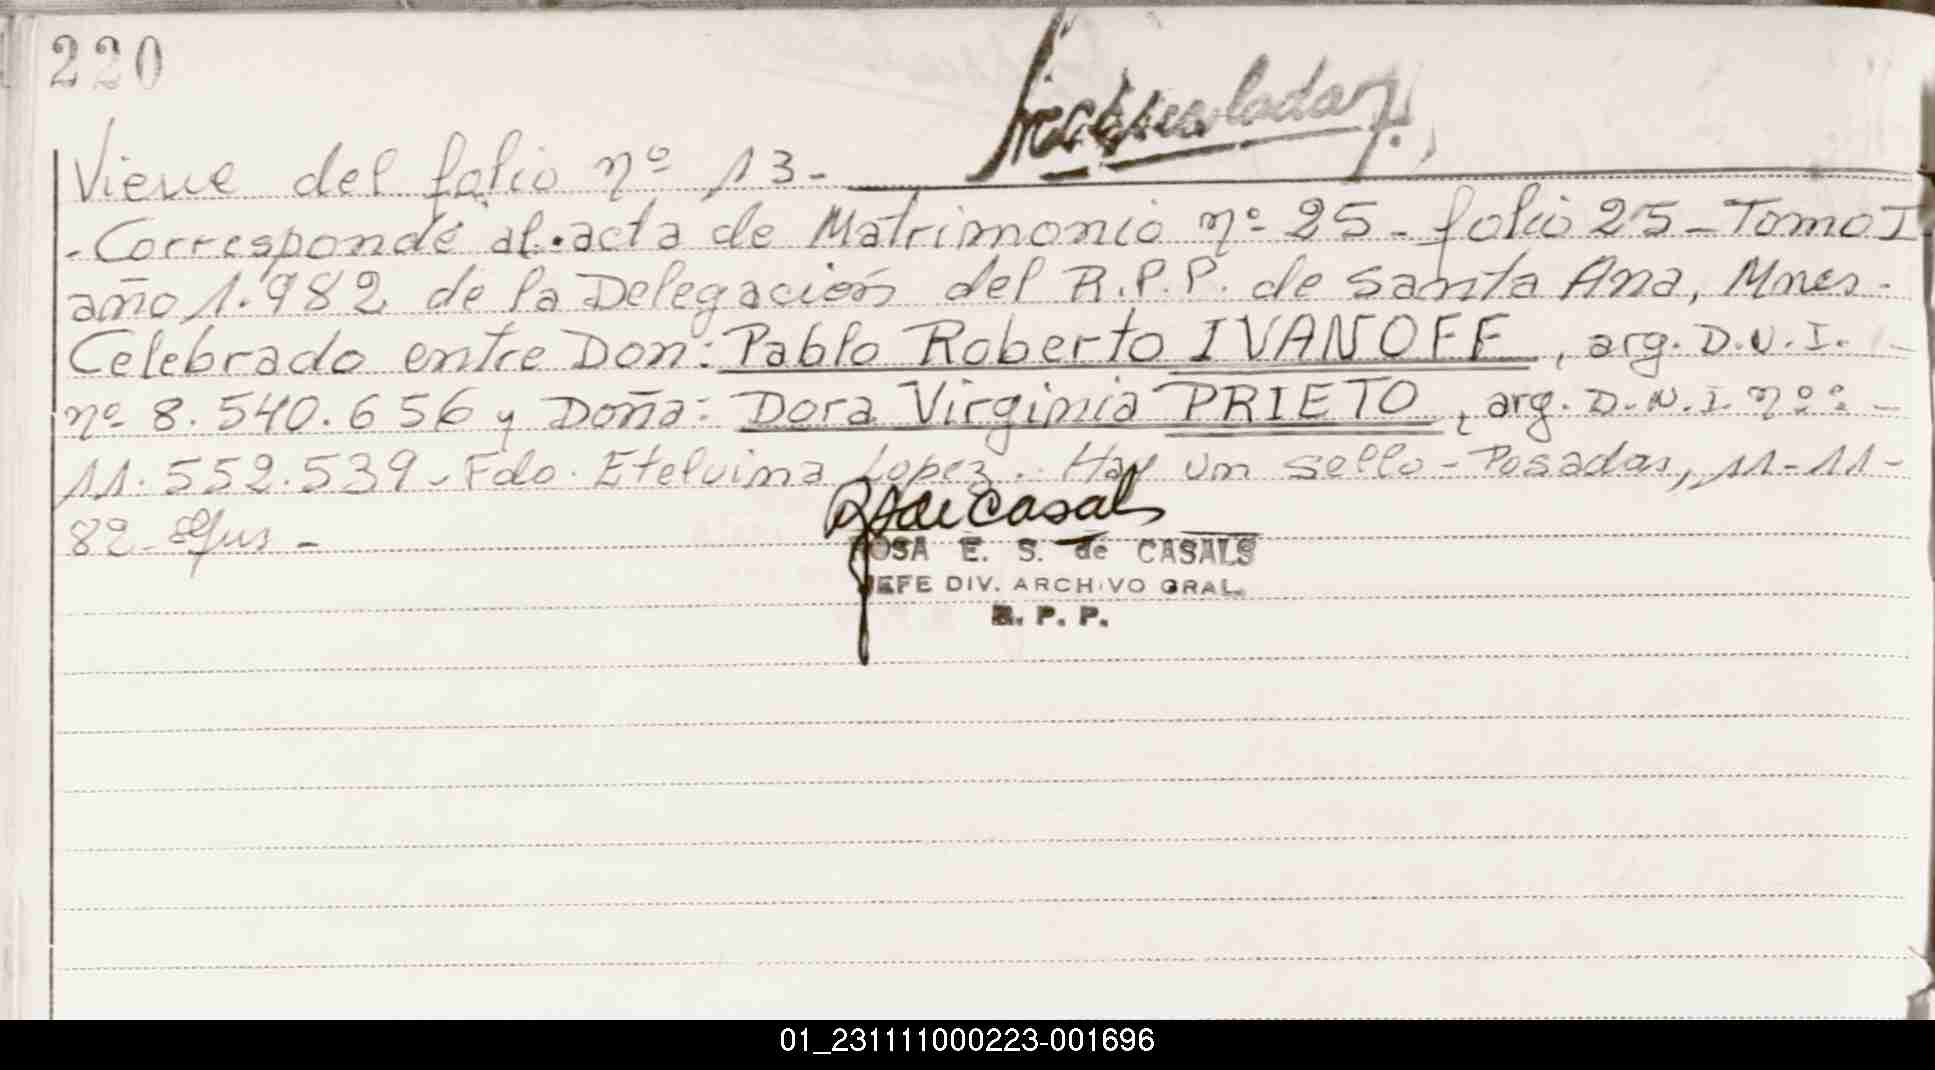 220
Viene del folio nº 13.-
- Corresponde al acta de Matrimonio nº 25 - folio 25 - Tomo I
año 1.982 de la Delegación del R.P.P. de Santa Ana, Mnes.
Celebrado entre Don: Pablo Roberto IVANOFF, arg. D.N.I.
nº 8.540.656 y Doña: Dora Virginia PRIETO, arg. D.N.I. nº: -
11.552.539 - Fdo. Etelvina Lopez. Hay un sello - Posadas, 11-11-
82 -
ROSA E. S. de CASALS
JEFE DIV. ARCHIVO GRAL.
R. P. P.
01_231111000223-001696